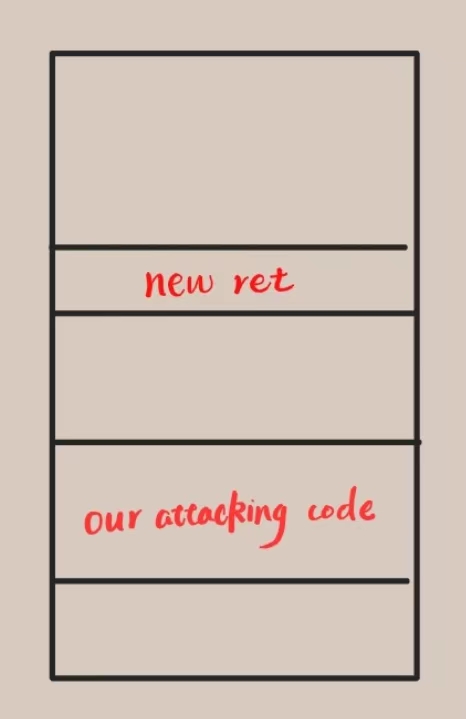 new ret
our attacking code